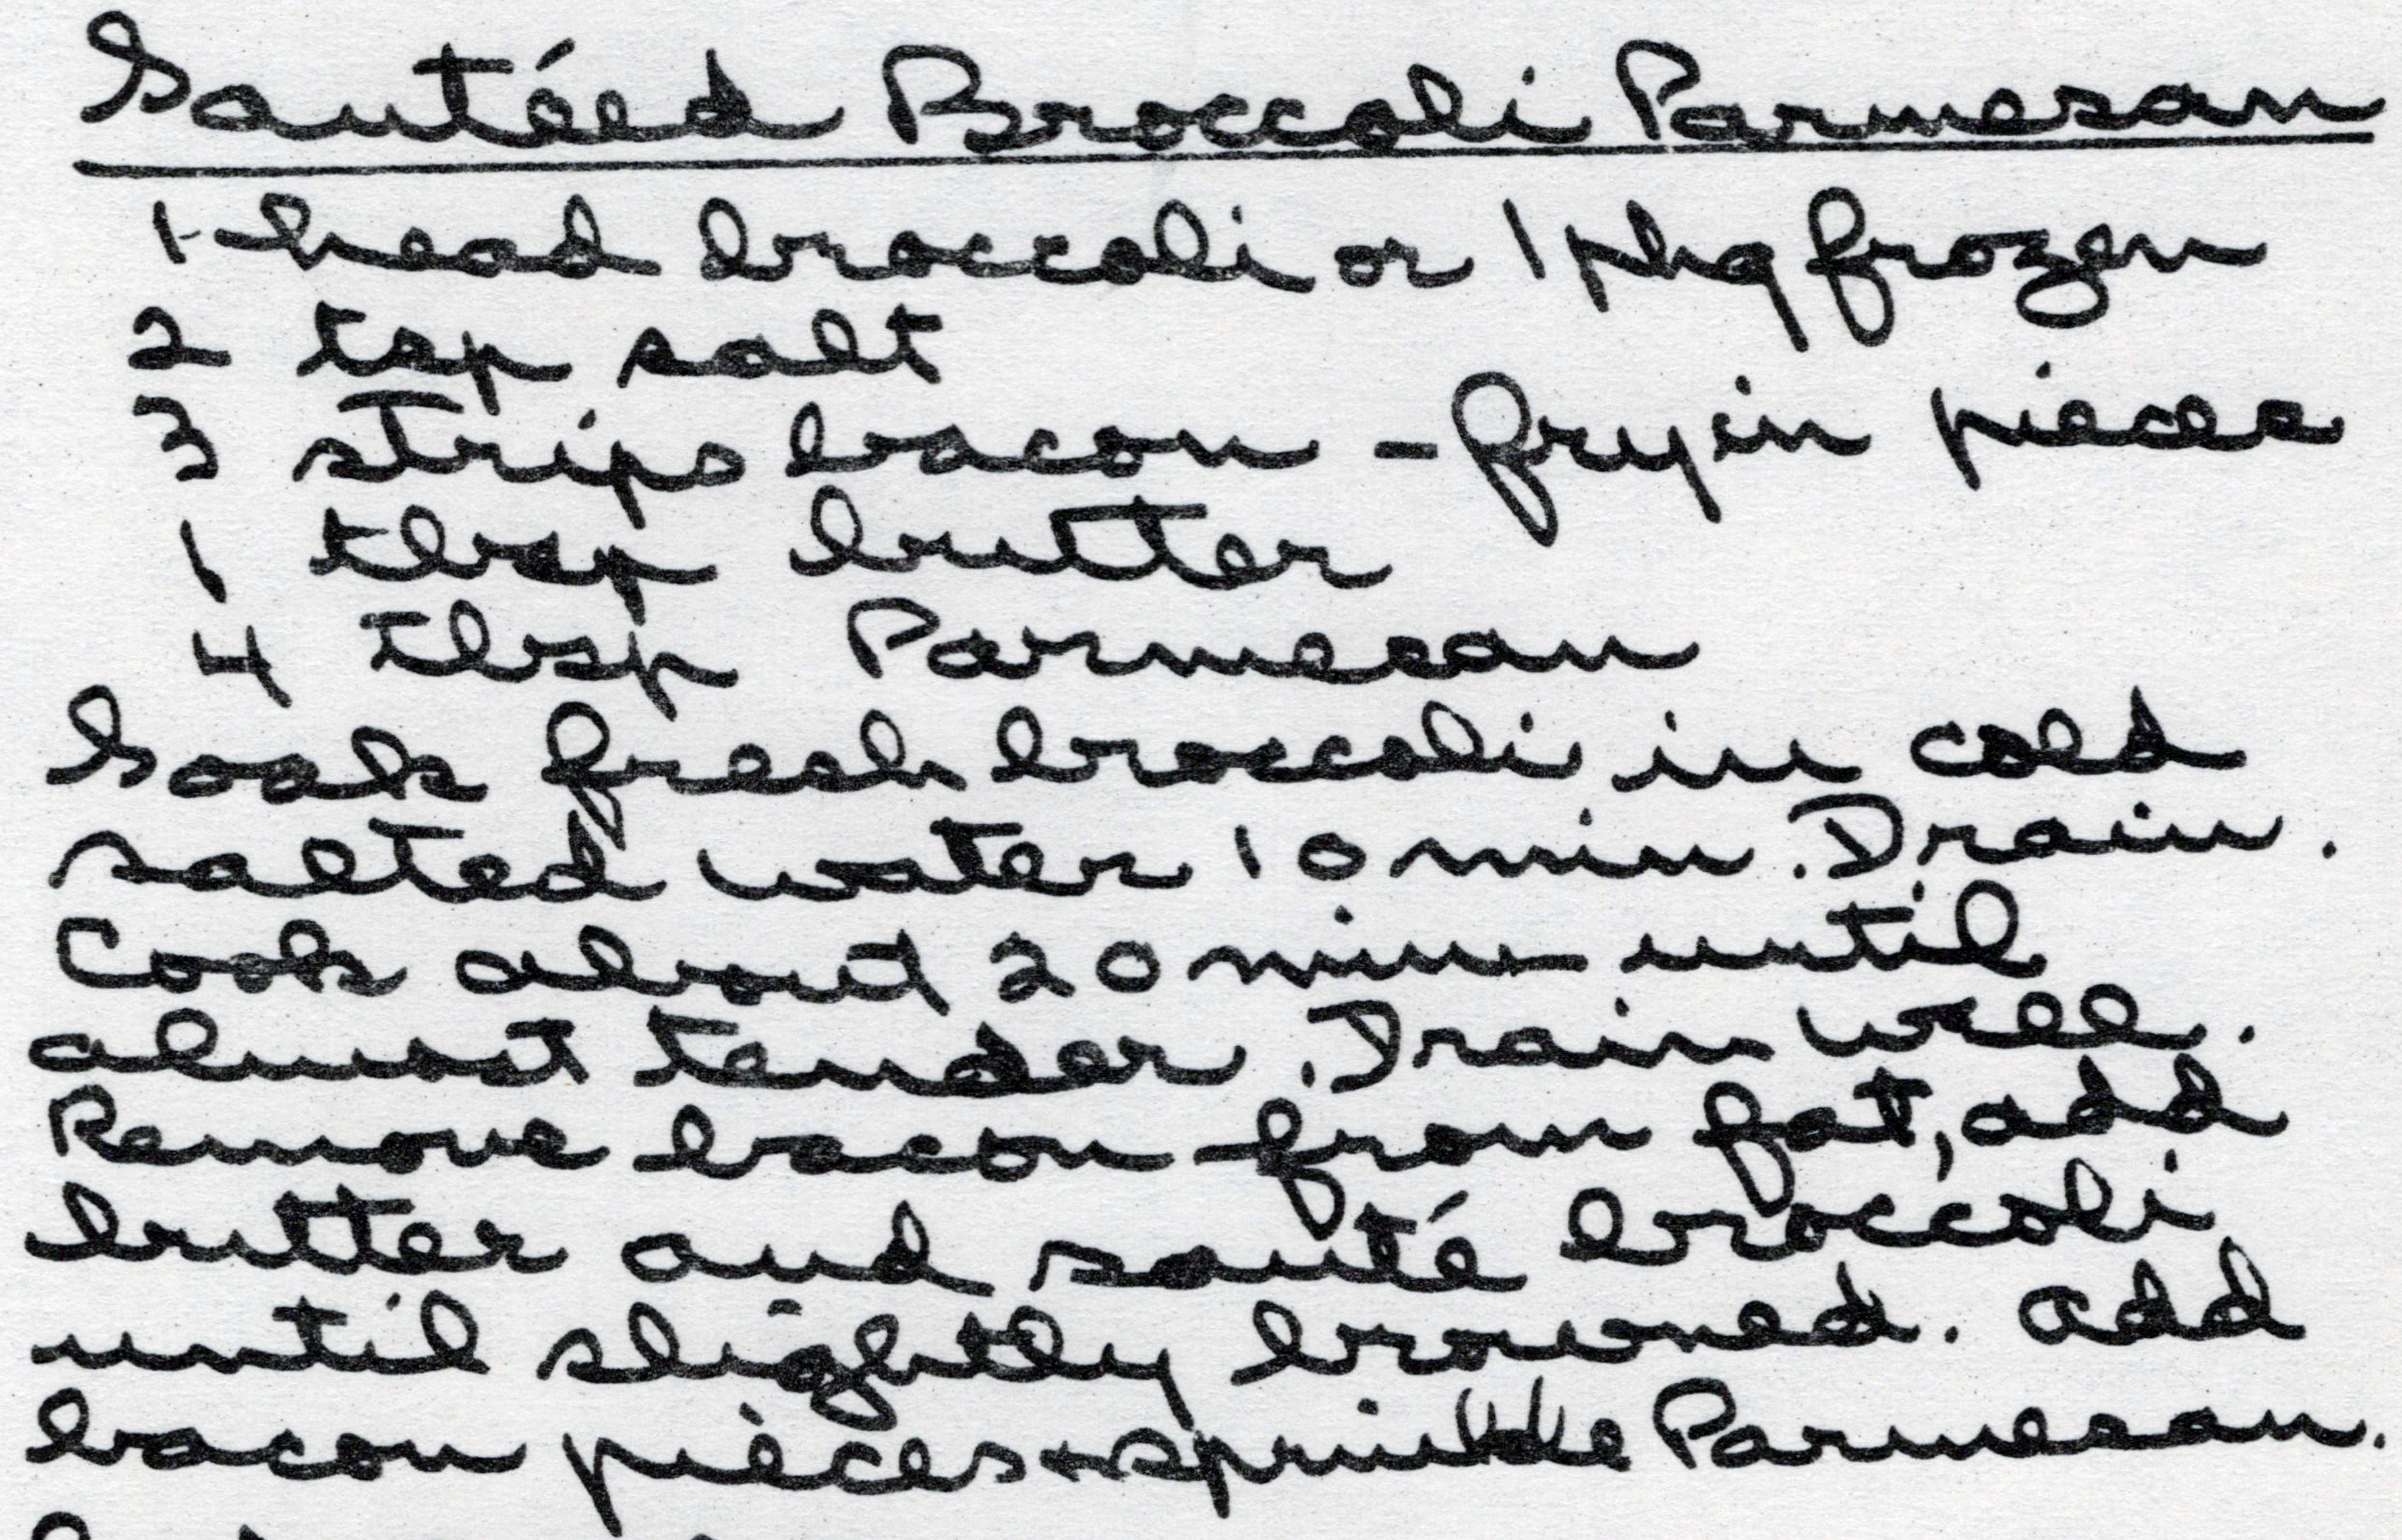 Sautéed Broccoli Parmesan
1-head broccoli or 1 pkg frozen
2 tsp salt
3 strips bacon - fry in pieces
1 tbsp butter
4 tbsp Parmesan
Soak fresh broccoli in cold
salted water 10 min. Drain.
Cook about 20 min until
almost tender. Drain well.
Remove bacon from fat, add
butter and sauté broccoli
until slightly browned. Add
bacon pieces + sprinkle Parmesan.